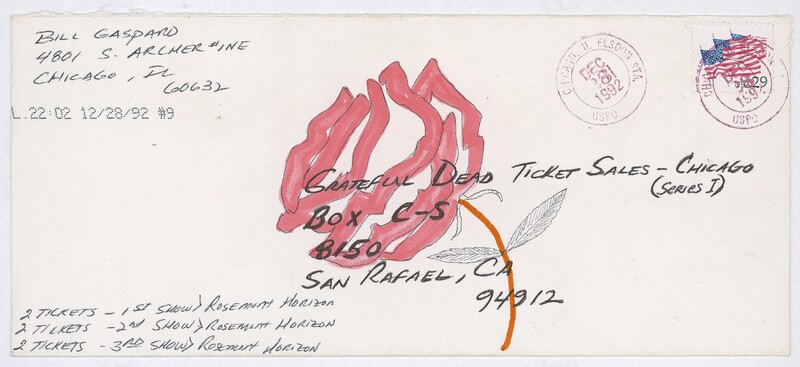 BILL GASPARD
4801 S. ARCHER #1NE
CHICAGO, IL
60632
L.22:02 12/28/92 #9
CHICAGO, IL ELSDON STA.
DEC
28
1992
USPO
29
1992
USPO
GRATEFUL DEAD TICKET SALES - CHICAGO
(SERIES I)
BOX C-S
8150
SAN RAFAEL, CA
94912
2 TICKETS - 1ST SHOW> ROSEMONT HORIZON
2 TICKETS - 2ND SHOW> ROSEMONT HORIZON
2 TICKETS - 3RD SHOW> ROSEMONT HORIZON